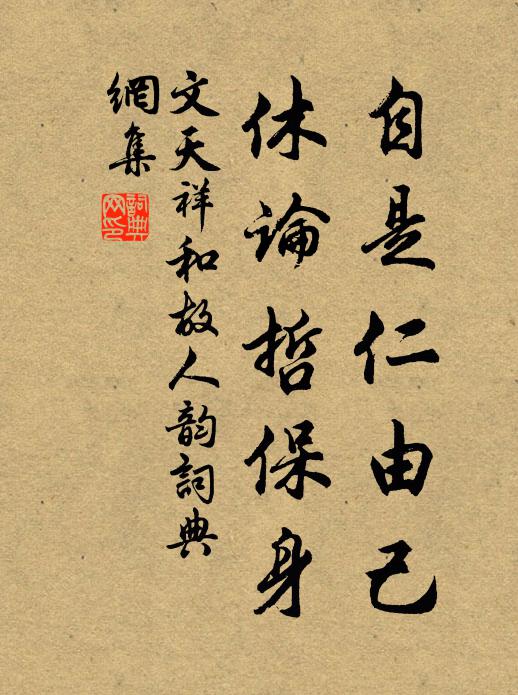 自是仁由己
休論哲保身
文天祥和故人韵詞典
網集
詞典网印